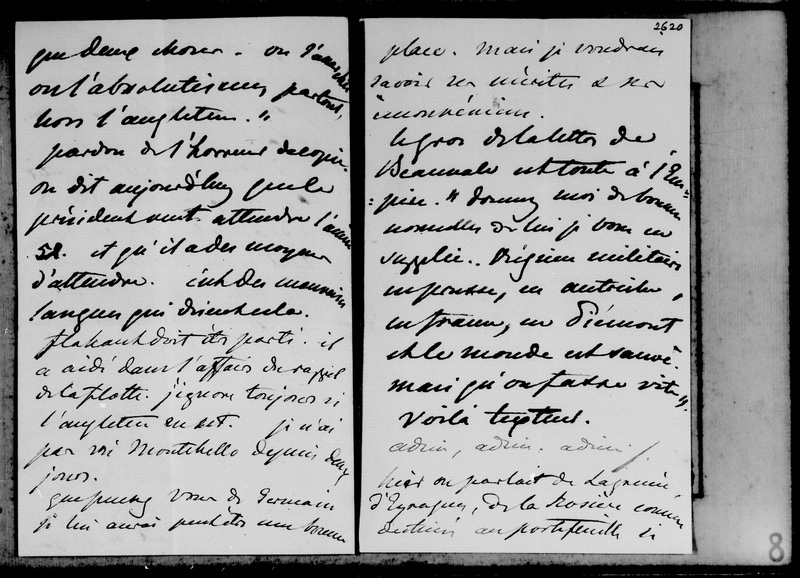 que deux choses. ou l'anarchie
ou l'absolutisme partout,
hors l'angleterre."
pardon de l'horreur de copie.
on dit aujourd'huy que le
président veut attendre l'année
52. et qu'il a des moyens
d'attendre. c'est des mauvaises
langues qui disent cela.
flahault doit être parti. il
a aidé dans l'affaire du rappel
de la flotte. j'ignore toujours si
l'angleterre en est. je n'ai
pas vu Montebello depuis deux
jours.
que pensez vous de Germain
je lui aurai peut être une bonne
2620
place. mais je voudrais
savoir ses mérites & ses
inconvénients.
le gros de la lettre de
Beauvale est toute à l'Em-
-pire. "donnez moi de bonnes
nouvelles de lui je vous en
supplie. Régime militaire
en prusse, en autriche,
en france, en Piémont
et le monde est sauvé.
mais qu'on fasse vite".
Voilà textuel.
adieu, adieu. adieu.
hier on parlait de Lagrené
d'Eyragues, de la Rosière comme
destinés au portefeuille si
8